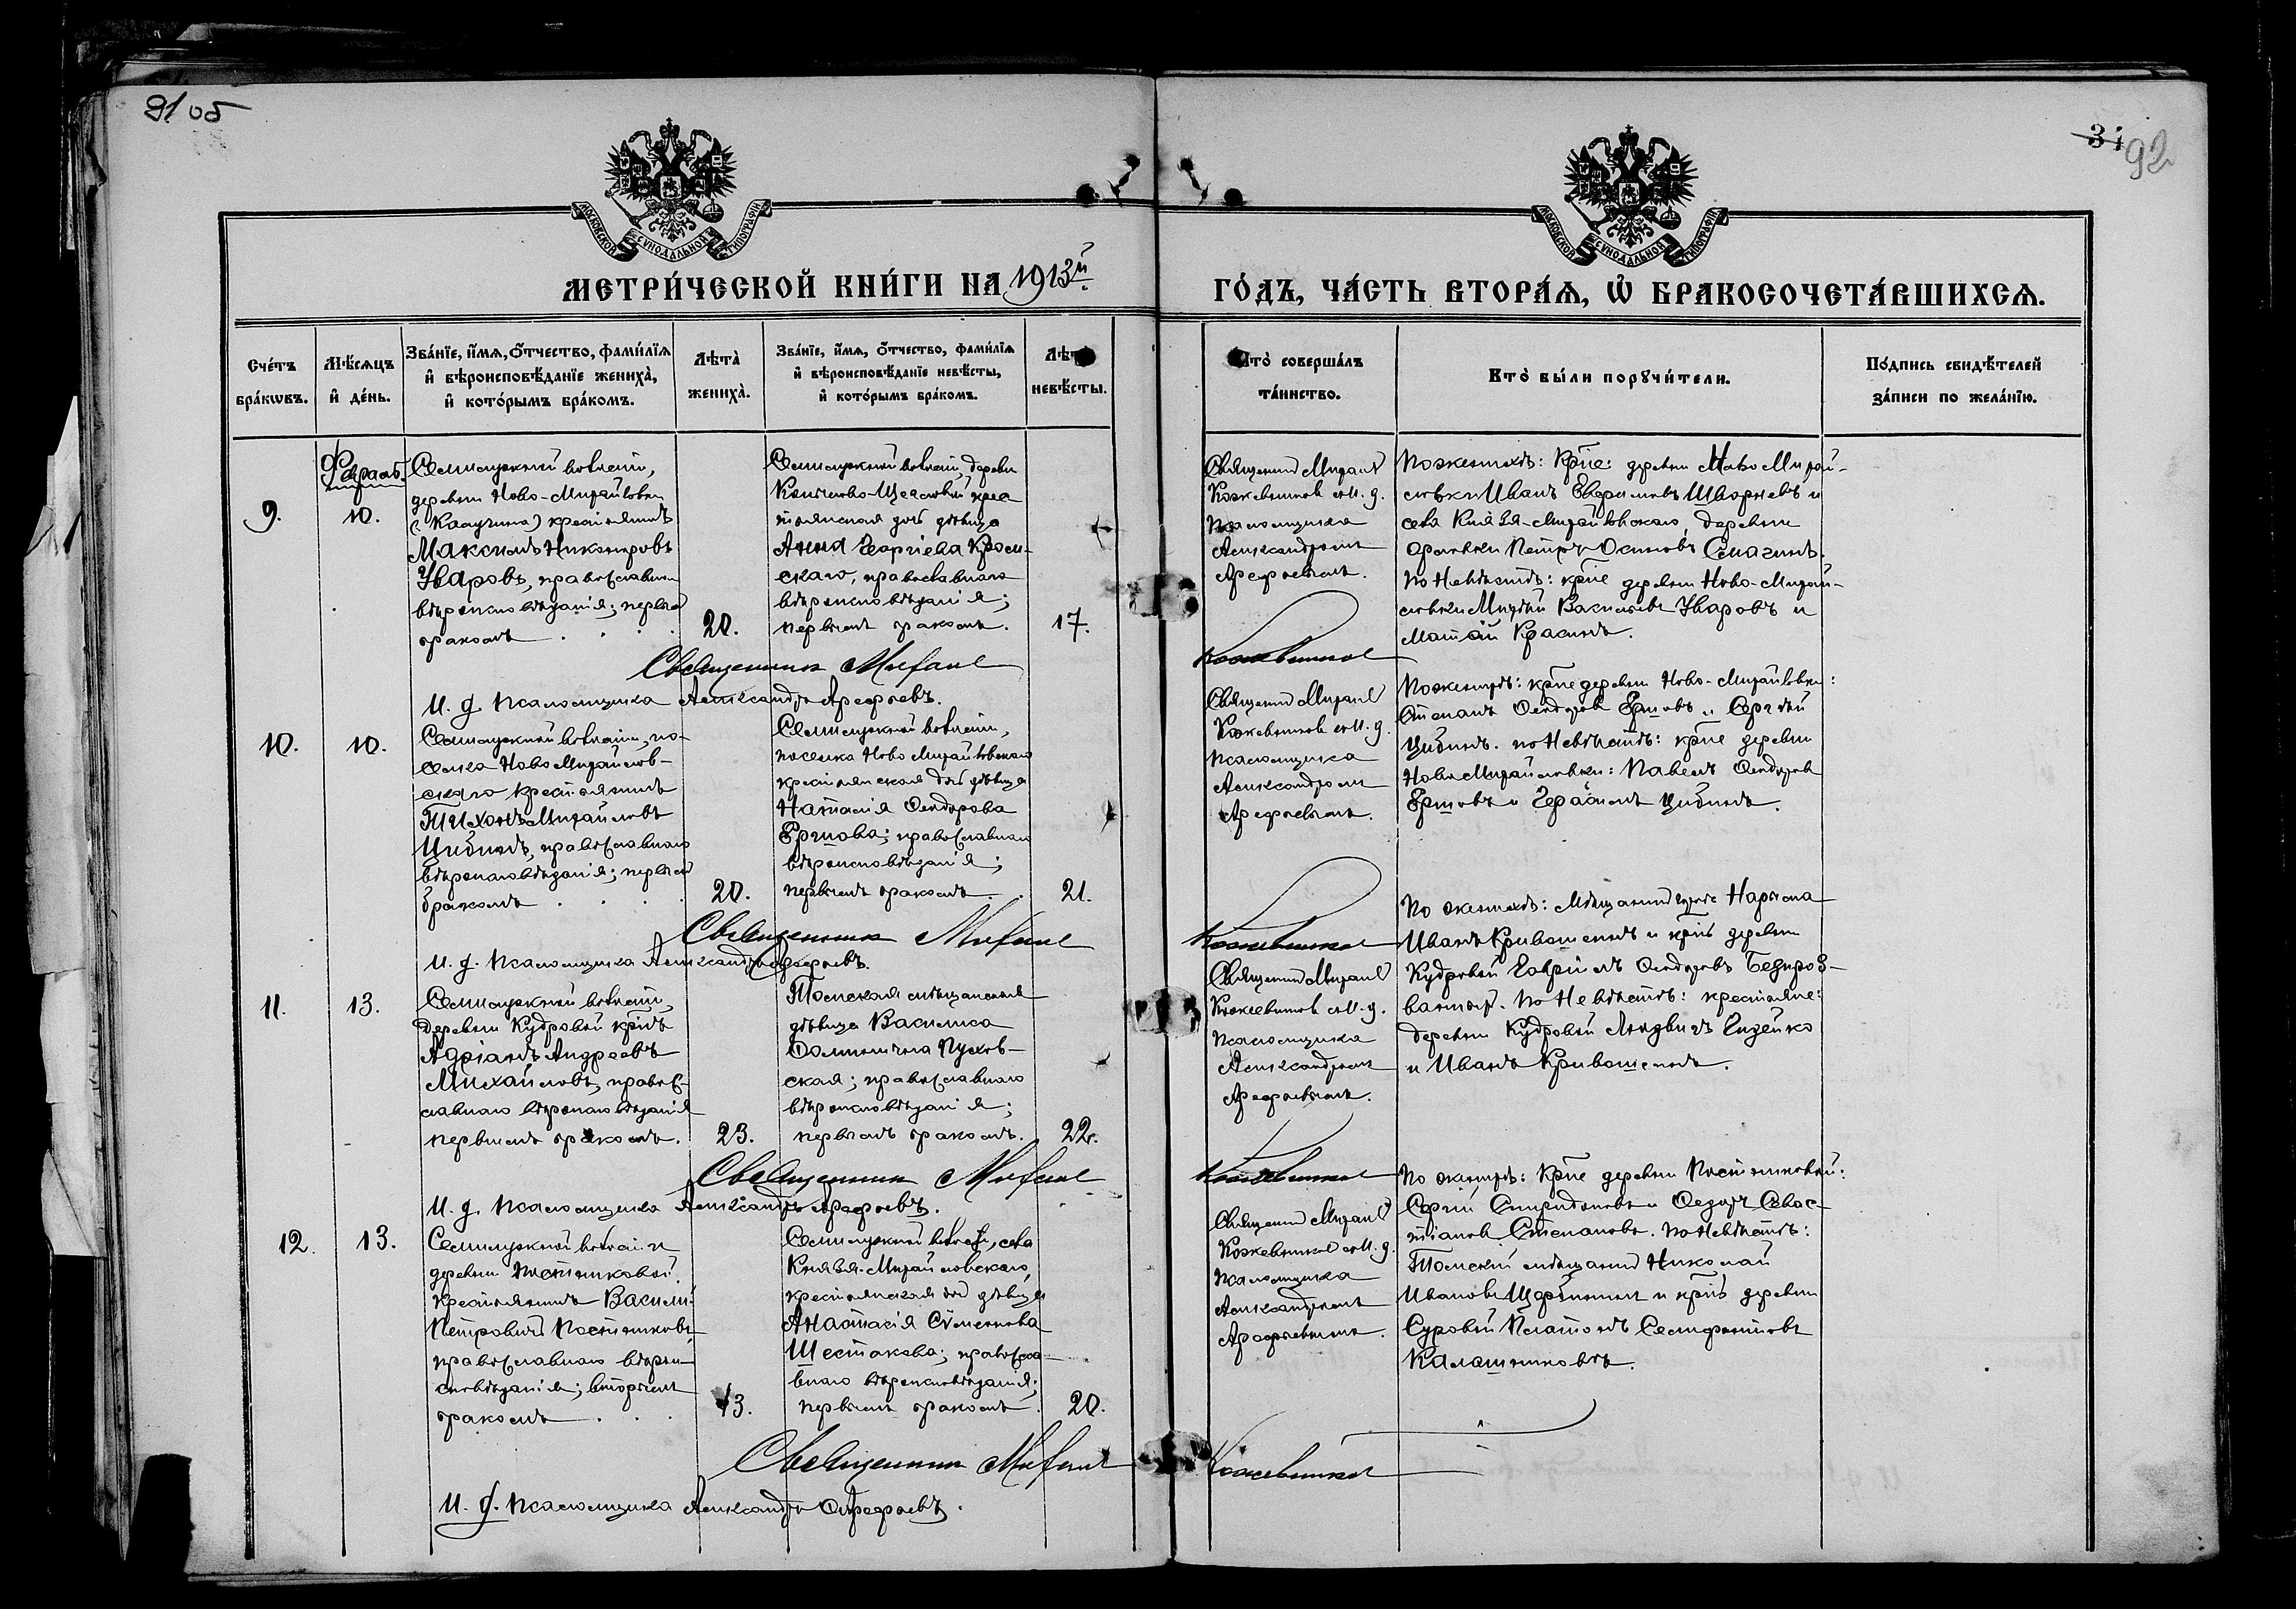 91 об
31
92
МОСКОВСКОЙ СѴНОДАЛЬНОЙ ТИПОГРАФІИ
МОСКОВСКОЙ СѴНОДАЛЬНОЙ ТИПОГРАФІИ
МЕТРИ́ЧЕСКОЙ КНИ́ГИ НА 1913й
ГО́ДЪ, ЧА́СТЬ ВТОРА́Ѧ, Ѽ БРАКОСОЧЕТА́ВШИХСѦ.
Сче́тъ бра́кѡвъ.
Мѣ́сяцъ и҆ де́нь.
Зва́нїе, и҆́мя, ѻ҆́тчество, фами́лїя и҆ вѣроисповѣ́данїе жениха̀, и҆ кото́рымъ бра́комъ.
Лѣта̀ жениха̀.
Зва́нїе, и҆́мя, ѻ҆́тчество, фами́лїя и҆ вѣроисповѣ́данїе невѣ́сты, и҆ кото́рымъ бра́комъ.
Лѣта̀ невѣ́сты.
Кто̀ соверша́лъ та́инство.
Кто̀ бы́ли порꙋчи́тели.
По́дпись свидѣ́телей за́писи по жела́нїю.
9.
Февраль
10.
Семилужной волости,
деревни Ново-Михайловки
(Калугина) крестьянинъ
Максимъ Никаноровъ
Уваровъ, православнаго
вѣроисповѣданія; первымъ
бракомъ
20.
Семилужной волости, деревни
крестьянская дочь дѣвица
Анна Георгіева
православнаго
вѣроисповѣданія;
первымъ бракомъ.
17.
Священникъ Михаилъ
Кожевниковъ съ И. д.
псаломщика
Александромъ
Арефьевымъ.
По женихѣ: кр̃не: деревни Ново Михай-
ловки Иванъ
села Князе-Михайловскаго, деревни
Петръ Осиповъ
По невѣстѣ: кр̃не деревни Ново-Михай-
ловки Василіевъ Уваровъ и
Красинъ.
Священникъ Михаилъ Кожевниковъ
И. д. псаломщика Александръ Арефьевъ.
10.
10.
Семилужной волости, по-
селка Ново Михайлов-
скаго крестьянинъ
Тихонъ Михайловъ
Цибинъ, православнаго
вѣроисповѣданія; первымъ
бракомъ
20.
Семилужной волости,
поселка Ново Михайловскаго
крестьянская дочь дѣвица
Наталія Ѳеодорова
Ершова; православнаго
вѣроисповѣданія;
первымъ бракомъ.
21.
Священникъ Михаилъ
Кожевниковъ съ И. д.
псаломщика
Александромъ
Арефьевымъ.
По женихѣ: кр̃не деревни Ново-Михайловки:
Степанъ Ѳеодоровъ Ершовъ и Сергѣй
Цибинъ. по невѣстѣ: кр̃не деревни
Ново Михайловки: Павелъ Ѳеодоровъ
Ершовъ и Герасимъ Цибинъ.
Священникъ Михаилъ Кожевниковъ
И. д. псаломщика Александръ Арефьевъ.
11.
13.
Семилужной волости,
деревни Кудровой кр̃нъ
Адріанъ Андреевъ
Михайловъ, правос-
лавнаго вѣроисповѣданія
первымъ бракомъ.
23.
Томская мѣщанская
дѣвица Василиса
ская; православнаго
вѣроисповѣданія;
первымъ бракомъ.
22.
Священникъ Михаилъ
Кожевниковъ съ И. д.
псаломщика
Александромъ
Арефьевымъ.
По женихѣ: мѣщанинъ города Нарыма
Иванъ Кривошеинъ и кр̃нъ деревни
Кудровой Гавріилъ Ѳеодоровъ
По невѣстѣ: крестьяне:
деревни Кудровой
и Иванъ Кривошеинъ.
Священникъ Михаилъ Кожевниковъ
И. д. псаломщика Александръ Арефьевъ.
12.
13.
Семилужной волости
деревни Постниковой
крестьянинъ Василій
Петровичъ Постниковъ
православнаго вѣрои-
сповѣданія; вторымъ
бракомъ
Семилужной волости, села
Князе-Михайловскаго,
крестьянская дочь дѣвица
Анастасія Симеонова
Шестакова; правосла-
внаго вѣроисповѣданія;
первымъ бракомъ.
20.
Священникъ Михаилъ
Кожевниковъ съ И. д.
псаломщика
Александромъ
Арефьевымъ.
По женихѣ: кр̃не деревни Постниковой:
Сергій Спиридоновъ и Ѳедоръ Севас-
тіановъ Степановъ. По невѣстѣ:
Томскій мѣщанинъ Николай
Ивановъ и кр̃нъ деревни
Суровой Платонъ
Калашниковъ.
Священникъ Михаилъ Кожевниковъ
И. д. псаломщика Александръ Арефьевъ.